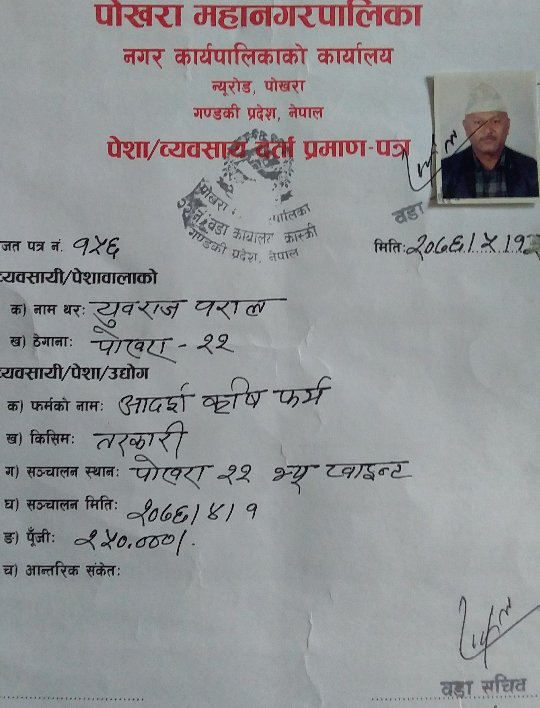 पोखरा महानगरपालिका
नगर कार्यपालिकाको कार्यालय
न्यूरोड, पोखरा
गण्डकी प्रदेश, नेपाल
पेशा/व्यवसाय दर्ता प्रमाण-पत्र
पोखरा पालिका
वडा कार्यालय कास्की
गण्डकी प्रदेश, नेपाल
वडा
जत पत्र नं. १५६
मिति: २०७६/५/१२
व्यवसायी/पेशावालाको
क) नाम थर: युवराज पराल
ख) ठेगाना: पोखरा - २२
व्यवसायी/पेशा/उद्योग
क) फर्मको नाम: आदर्श कृषि फर्म
ख) किसिम: तरकारी
ग) सञ्चालन स्थान: पोखरा २२ भ्यू प्वाइन्ट
घ) सञ्चालन मिति: २०७६/४/१
ङ) पूँजी: २५०,०००/.
च) आन्तरिक संकेत:
वडा सचिव